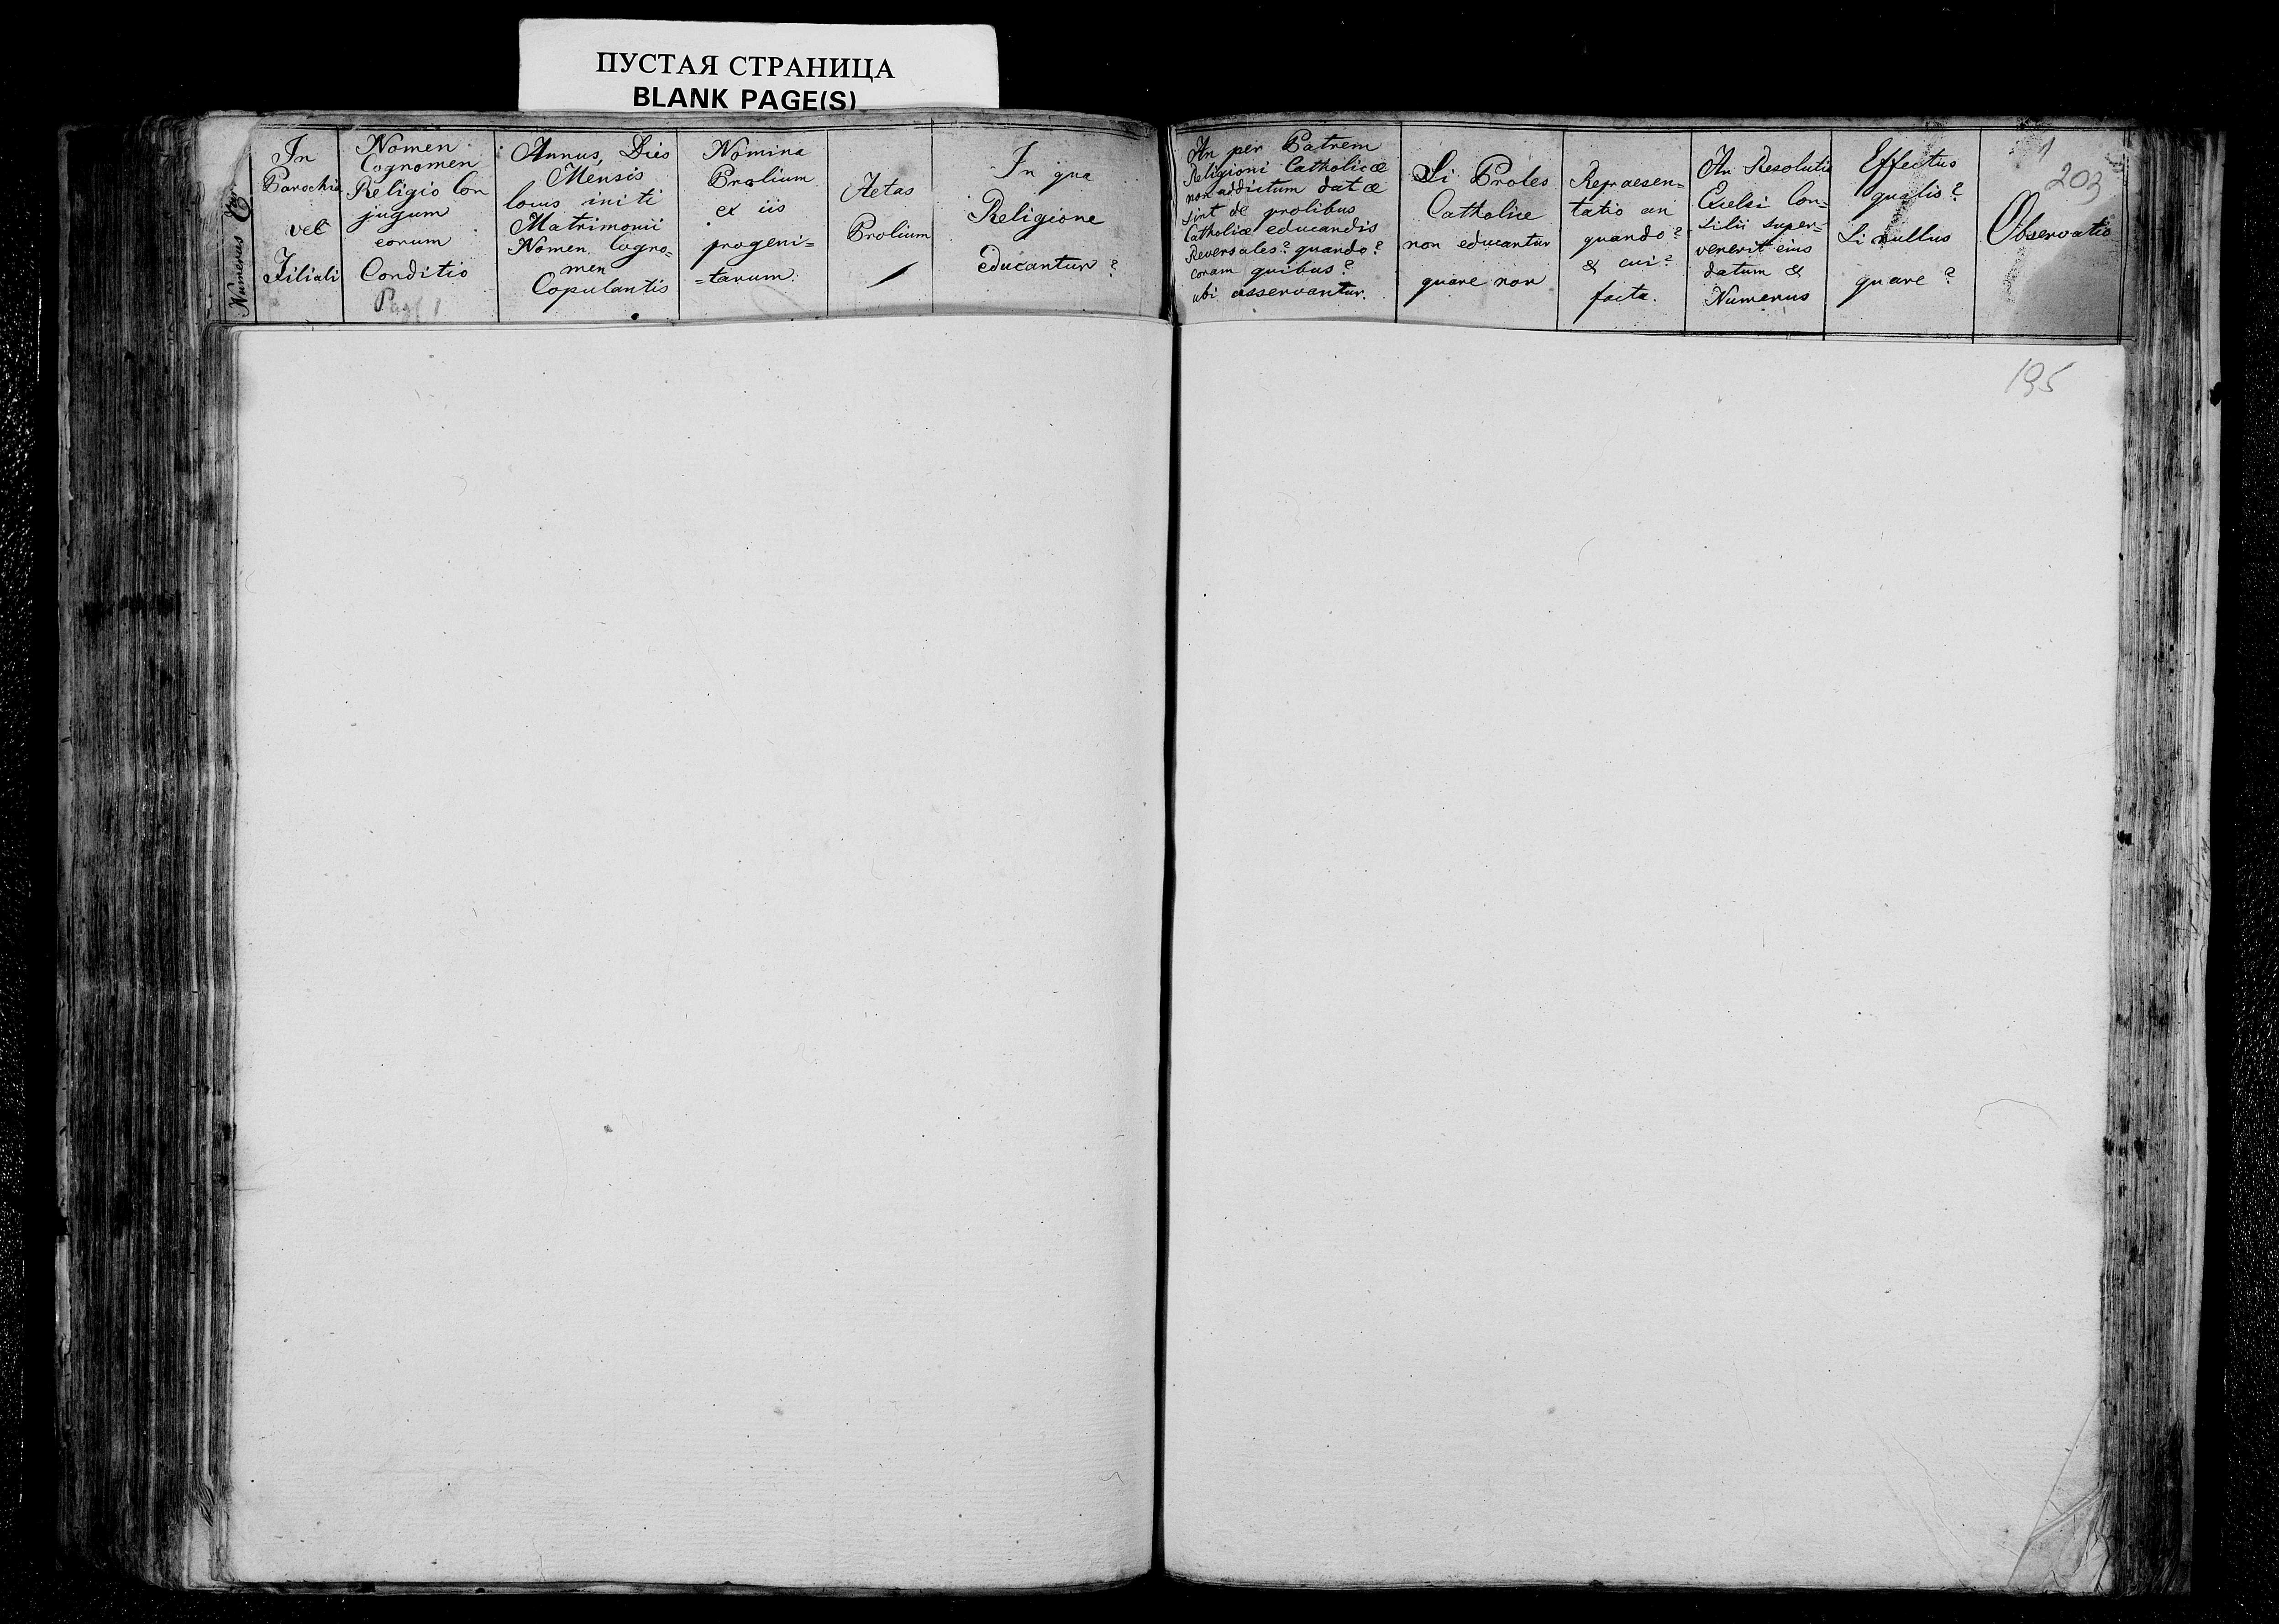 ПУСТАЯ СТРАНИЦА
BLANK PAGE(S)
Numerus
In
Parochia
vel
Filiali
Nomen
Cognomen
Religio Con
jugum
eorum
Conditio
Pag. 1
Annus, Dies
Mensis
locus initi
Matrimonii
Nomen Cogno=
men
Copulantis
Nomina
Prolium
ex iis
progeni=
=tarum.
Aetas
Prolium
In qua
Religione
educantur?
An per Patrem
Religioni Catholicæ
non addictum datæ
sint de prolibus
Catholicæ educandis
Reversales? quando?
coram quibus?
ubi asservantur.
Si Proles
Catholice
non educantur
quare non
Repraesen=
tatio an
quando?
& cui?
facta.
An Resolutio
Excelsi Con=
silii super=
venerit eius
datum &
Numerus
Effectus
qualis?
Si nullus
quare?
1
203
Observatio
195